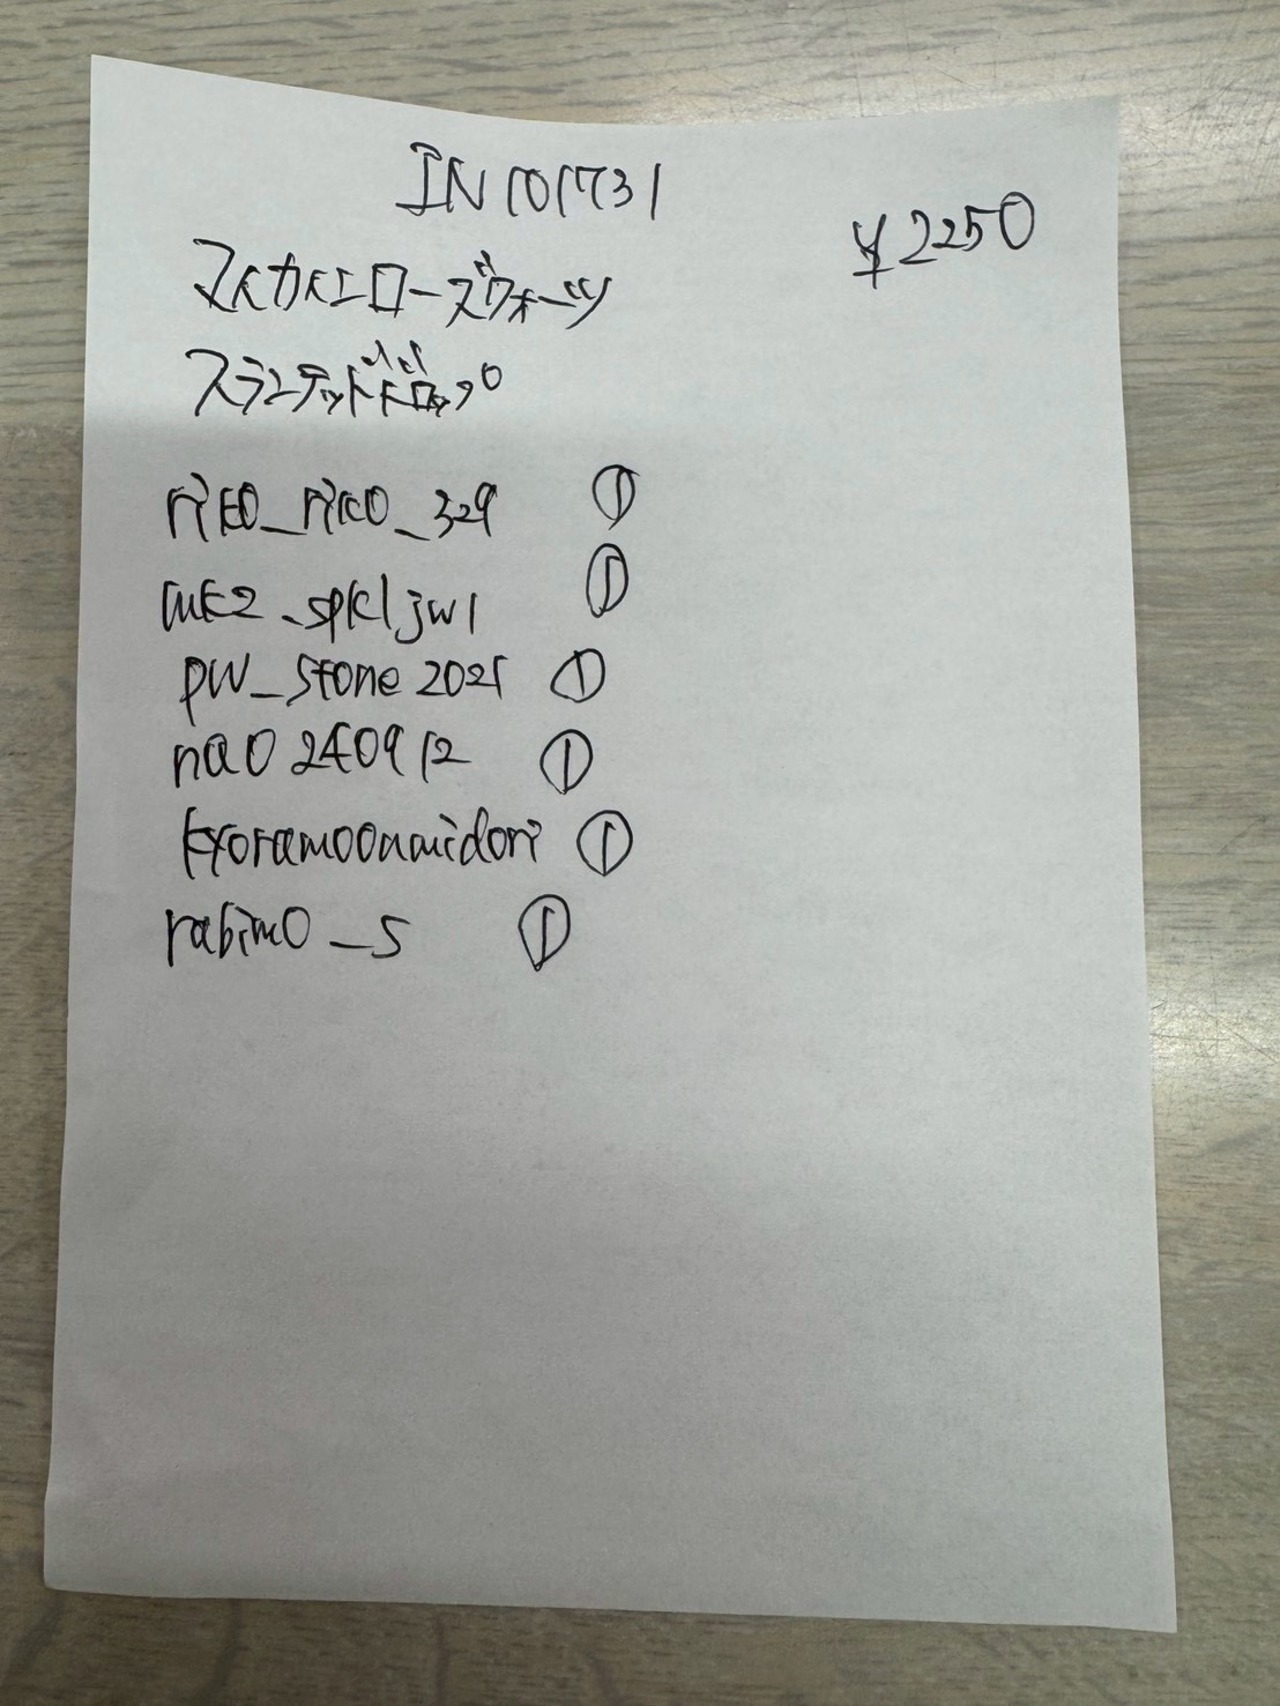 IN101731
¥2250
マイカインローズクォーツ
スランテッドドロップ
riko_rico_329 ①
mk2_spkljw1 ①
pw_stone2021 ①
nao240912 ①
kyoramoonmidori ①
rabimo_s ①